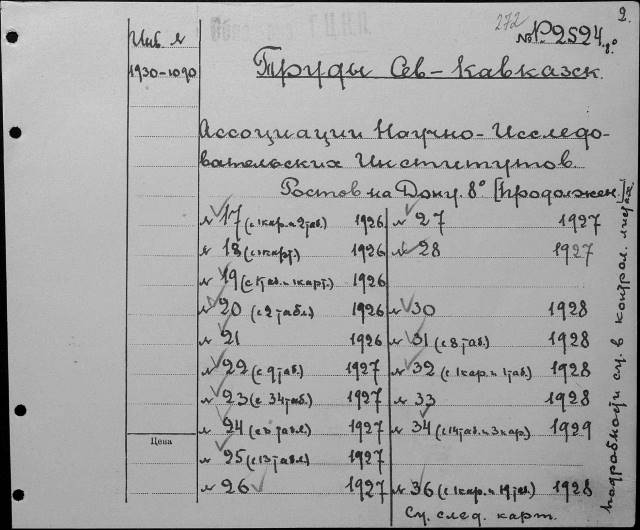 272
2.
№ P2524 8°
Инв. №
1930-1090
Труды Сев-Кавказск.
Ассоциации Научно-Исследо-
вательских Институтов.
Ростов на Дону. 8° [продолжен.]
№ 17 (с 1 кар. и 2 таб.) 1926
№ 18 (с карт.) 1926
№ 19 (с таб. и 1 карт.) 1926
№ 20 (с 2 табл.) 1926
№ 21 1926
№ 22 (с 9 таб.) 1927
№ 23 (с 34 таб.) 1927
№ 24 (с табл.) 1927
№ 25 (с 13 табл.) 1927
№ 26 1927
№ 27 1927
№ 28 1927
№ 30 1928
№ 31 (с 8 таб.) 1928
№ 32 (с 1 кар. и 1 таб.) 1928
№ 33 1928
№ 34 (с 14 таб. и 3 кар.) 1929
№ 36 (с 1 кар. и 19 таб.) 1928
См. след. карт.
Цена
подробности см. в контрол. листах